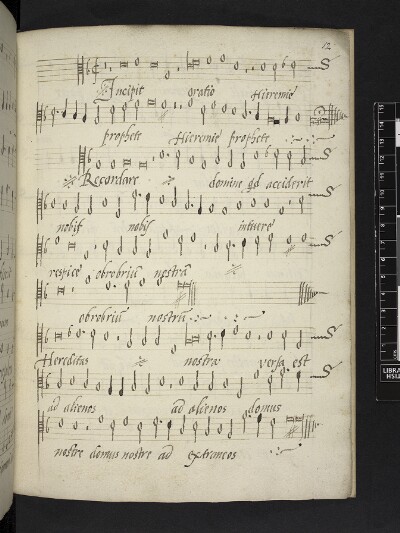 12
Incipit oratio Hieremie
prophete Hieremie prophete
Recordare domine qd acciderit
nobis nobis intuere
respice obrobriũ nostrũ
obrobriũ nostrũ
Hereditas nostra versa est
ad alienos ad alienos domus
nostre domus nostre ad extraneos
LIBRA